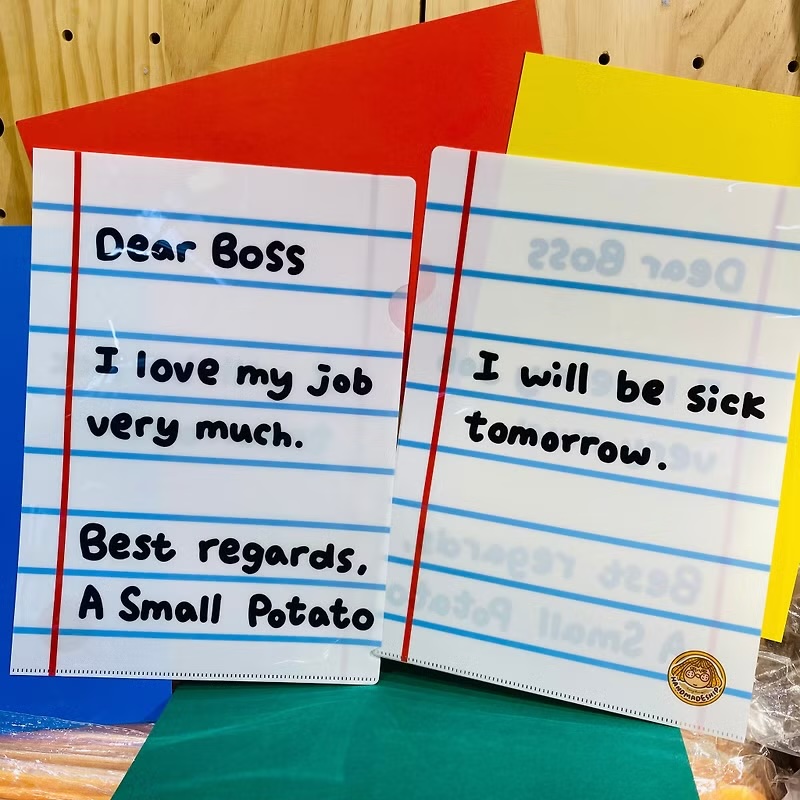 Dear Boss
I love my job
very much.
Best regards,
A Small Potato
I will be sick
tomorrow.
HANDMADESHIP